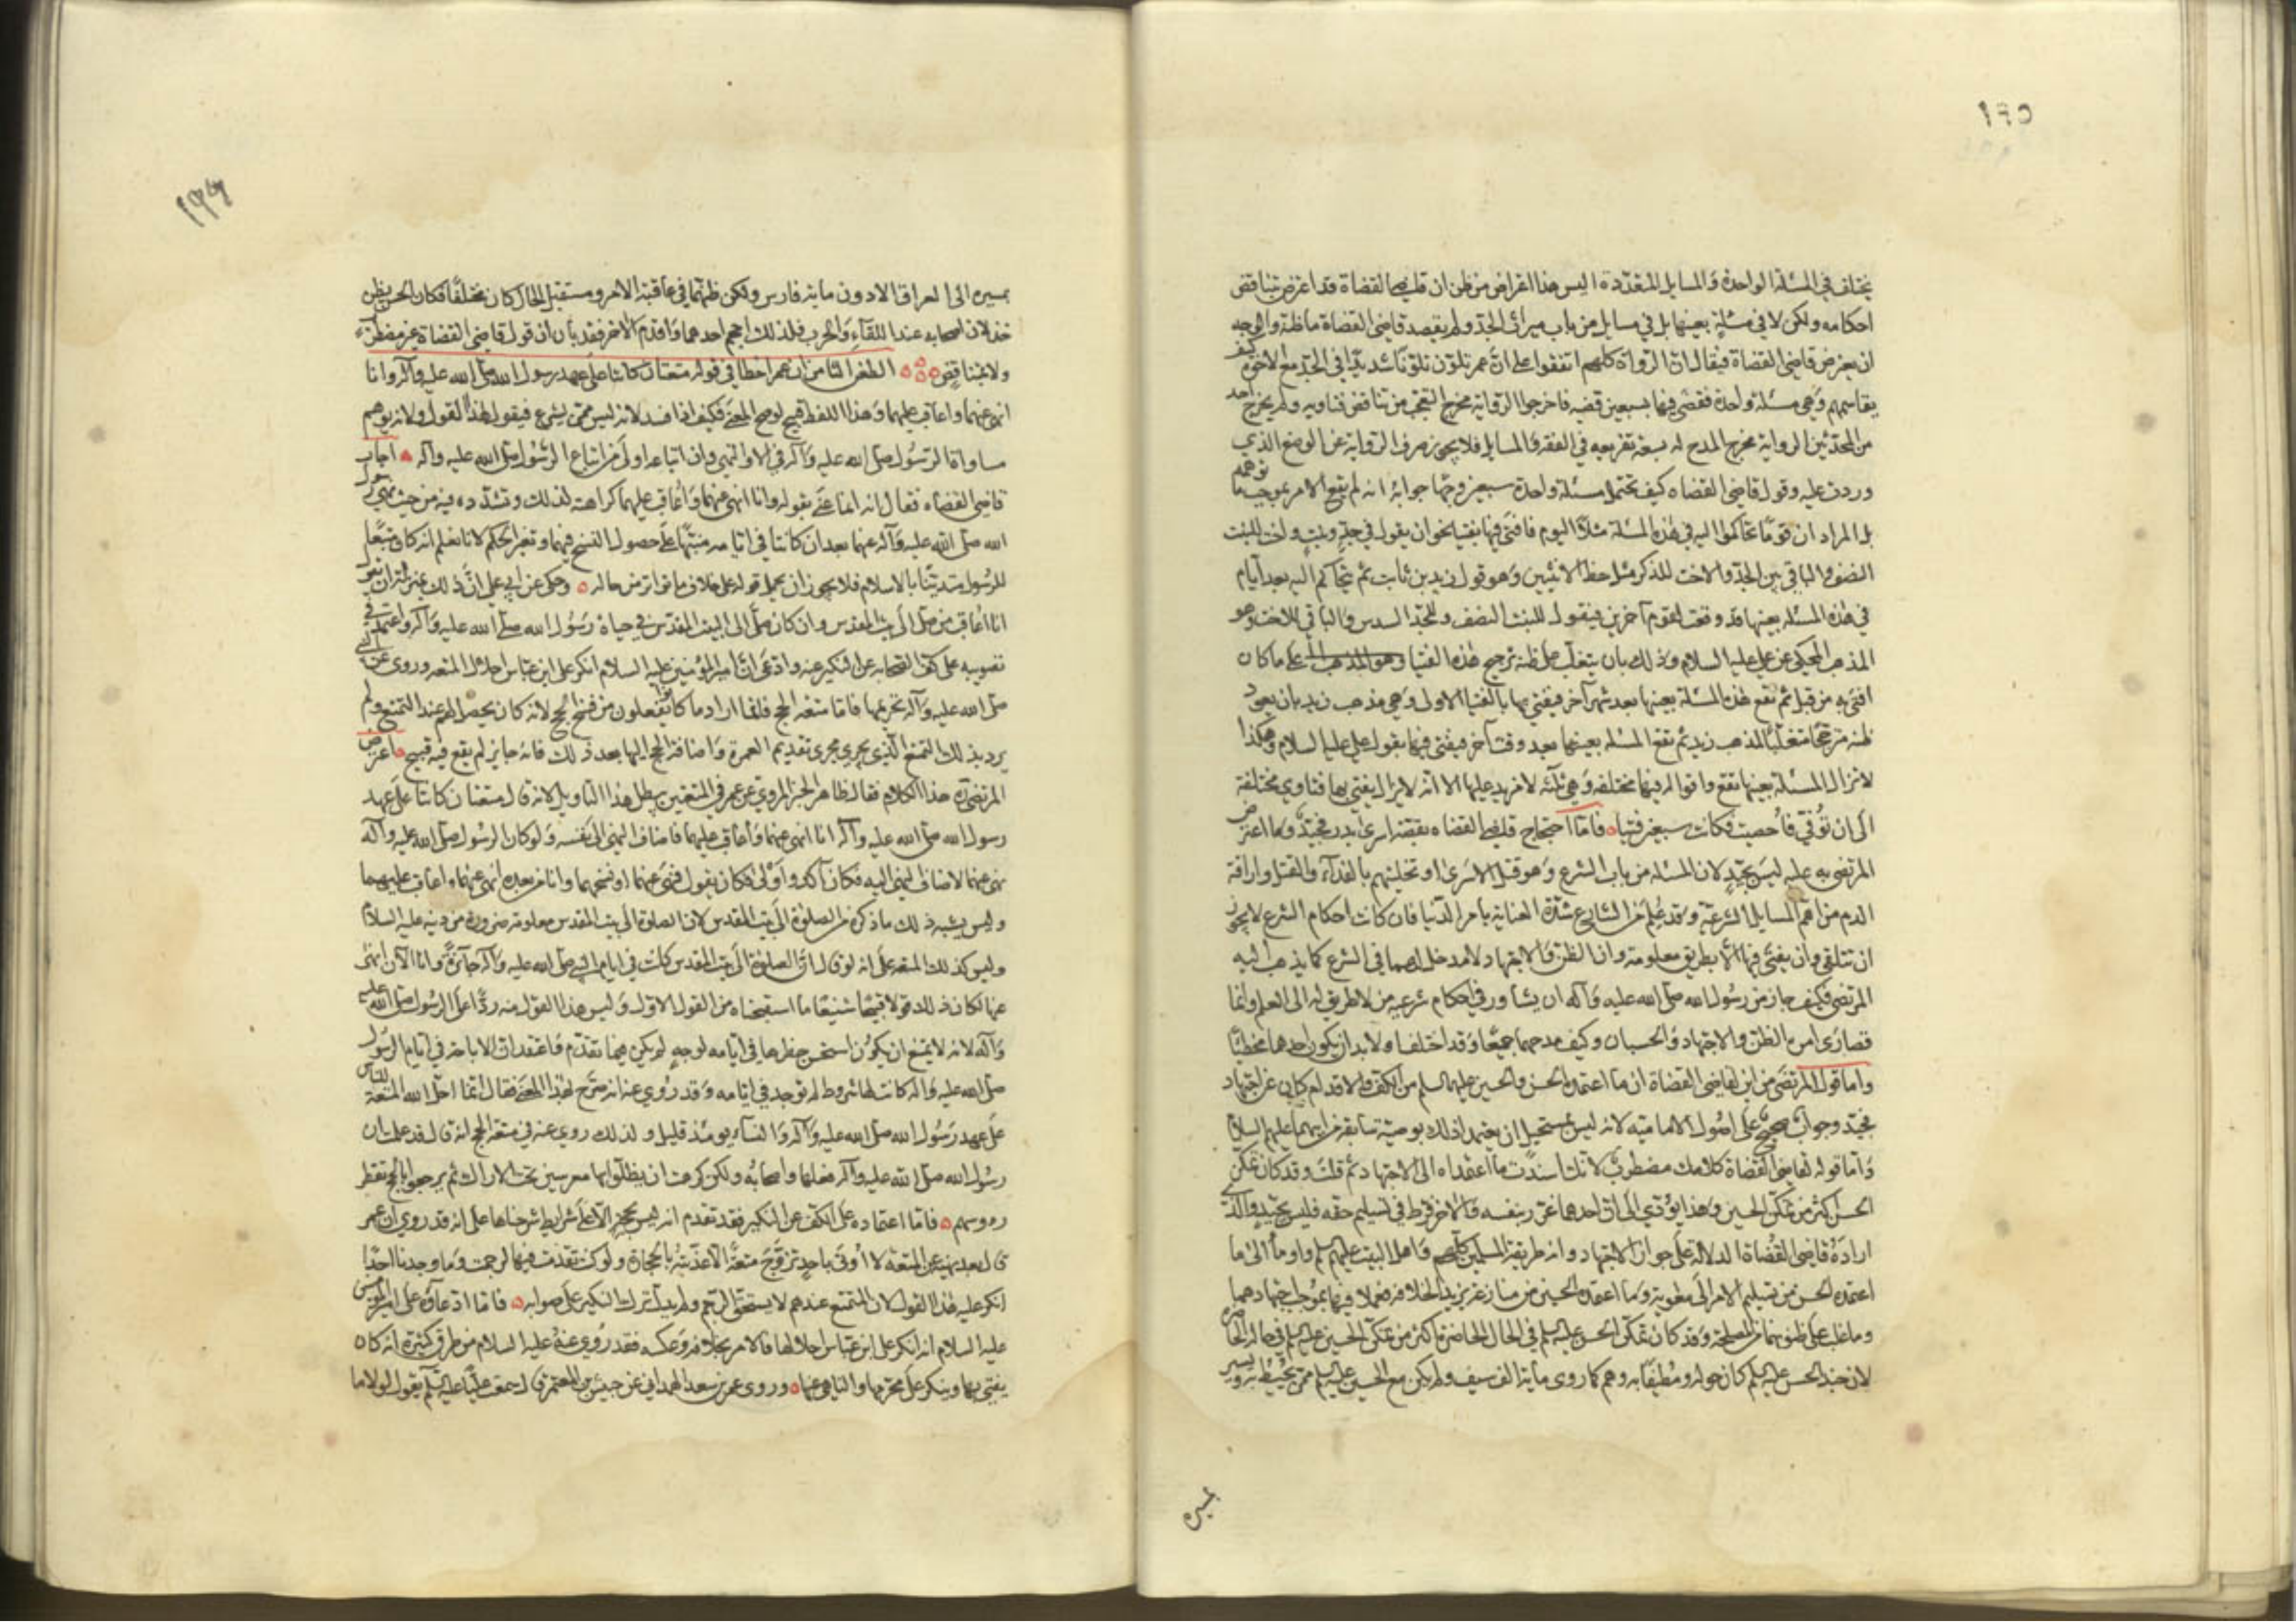 ١٩٥
يختلف في المسئلة الواحدة والمسايل المتعددة اليس هذا اعتراض من ظن ان قاضي القضاة قد اعترض تناقض
احكامه ولكن لا في مسئلة بعينها بل في مسايل من باب ميراث الجد ولم يقصد قاضي القضاة ما ظنه والوجه
ان يعترض قاضي القضاة فيقال ان الرواة كلهم اتفقوا على ان عمر تلون تلونا شديدا في الجد مع الاخوة كيف
يقاسمهم وهي مسئلة واحدة فقضى فيها بسبعين قضيه فاخرجوا الرواية مخرج التعجب من تناقض فتاويه ولم يخرج احد
من المحدثين الرواية مخرج المدح له بسعة تفريعه في الفقه والمسايل فلا يجوز صرف الرواية عن الوضع الذي
وردت عليه وقول قاضي القضاه كيف تحتمل مسئلة واحدة سبعين وجها جوابه انه لم يقع الامر بموجب ما توهمه
بل المراد ان قوما تحاكموا اليه في هذه المسئلة مثلا اليوم فافتى فيها بفتيا نحو ان يقول في جد وبنت واخت للبنت
النصف والباقي بين الجد والاخت للذكر مثل حظ الانثيين وهو قول زيد بن ثابت ثم يتحاكم اليه بعد ايام
في هذه المسئله بعينها قد وقعت لقوم آخرين فيقول للبنت النصف وللجد السدس والباقي للاخت وهو
المذهب المحكي عن علي عليه السلام وذلك بان يتغلب على ظنه ترجيح هذه الفتيا على ما كان
افتى به من قبل ثم تقع هذه المسئلة بعينها بعد شهر آخر فيفتي بها بالفتيا الاولى وهي مذهب زيد بان يعود
ظنه مترجحا متغلبا لمذهب زيد ثم تقع المسئله بعينها بعد وقت آخر فيفتي فيها بقول علي عليه السلام وهكذا
لا تزال المسئلة بعينها تقع واقواله فيها مختلفه وهي ثلثة لا مزيد عليها الا انه لا يزال يفتي بها فتاوي مختلفة
الى ان توفي فاحصيت فكانت سبعين فتيا ه فاما احتجاج قاضي القضاه بقصة اسرى بدر فجيد وما اعترض
المرتضى به عليه ليس بجيد لان المسئله من باب الشرع وهو قتل الاسرى او تخليتهم بالفدآء والقتل واراقة
الدم من اهم المسايل الشرعية وقد علم من الشارع شدة العناية بامر الدنيا فان كانت احكام الشرع لا يجوز
ان تتلقى وان يفتى فيها الا بطريق معلومة وان الظن والاجتهاد لا مدخل لهما في الشرع كما يذهب اليه
المرتضى فكيف جاز من رسول الله صلى الله عليه وآله ان يشاور في احكام شرعيه من لا طريق له الى العلم وانما
قصارى امره الظن والاجتهاد والحسبان وكيف مدحهما جميعا وقد اختلفا ولا بد ان يكون احدهما مخطئا
واما قول المرتضى من اين لقاضي القضاة ان ما اعتمده الحسن والحسين عليهما السلم من الكف والاقدام كان عن اجتهاد
فجيد وجواب صحيح على اصول الامامية لانه ليس بمستحيل ان يعتمدا ذلك بوصية سابقة من ابيهما عليهم السلام
واما قوله لقاضي القضاة كلامك مضطرب لانك اسندت ما اعتمداه الى الاجتهاد ثم قلت وقد كان تمكن
الحسن اكثر من تمكن الحسين وهذا يؤدي الى ان احدهما غرر بنفسه والاخر فرط في تسليم حقه فليس بجيد والذي
اراده قاضي القضاة الدلالة على جواز الاجتهاد وانه طريقة المسلمين كلهم واهل البيت عليهم السلم واومأ الى ما
اعتمده الحسن من تسليم الامر الى معوية وما اعتمده الحسين من منازعة يزيد الخلافة فعملا فيها بموجب اجتهادهما
وما غلب على ظنونهما من المصلحة وقد كان تمكن الحسن عليه السلم في الحال الحاضرة اكثر من تمكن الحسين عليه السلم في حاله الحاضرة
لان جند الحسن عليه السلم كان حوله ومطيفا به وهم كما روى مائة الف سيف ولم يكن مع الحسين عليه السلم ممن يحيط به ويسير
بمسيره
١٩٦
بمسيره الى العراق الا دون مائة فارس ولكن ظنهما في عاقبة الامر ومستقبل الحال كان مختلفا فكان الحسن يظن
خذلان اصحابه عند اللقآء والحرب فلذلك احجم احدهما واقدم الاخر فقد بان ان قول قاضي القضاة غير مضطرب
ولا متناقض الطعن الثامن ان عمر اخطأ في قوله متعتان كانتا على عهد رسول الله صلى الله عليه وآله وانا
انهى عنهما واعاقب عليهما وهذا اللفظ قبيح لو صح المعنى فكيف اذا فسد لانه ليس ممن يشرع فيقول هذا القول ولانه يوهم
مساواة الرسول صلى الله عليه وآله في الامر والنهي وان اتباعه اولى من اتباع الرسول صلى الله عليه وآله ه اجاب
قاضي القضاه فقال انه انما عنى بقوله وانا انهى عنهما واعاقب عليهما كراهته لذلك وتشدده فيه من حيث نهى رسول
الله صلى الله عليه وآله عنهما بعد ان كانتا في ايامه منبها على حصول النسخ فيهما وتغير الحكم لانا نعلم انه كان متبعا
للرسول متدينا بالاسلام فلا يجوز ان يحمل قوله على خلاف ما تواتر من حاله ه وحكى عن ابي علي ان ذلك بمنزلة ان يقول
انا اعاقب من صلى الى بيت المقدس وان كان صلى الى البيت المقدس في حياة رسول الله صلى الله عليه وآله واعتمد في
تصويبه على كف الصحابة عن النكير عنه وادعى ان امير المؤمنين عليه السلام انكر على ابن عباس احلال المتعه وروى عن النبي
صلى الله عليه وآله تحريمها فاما متعه الحج فانما اراد ما كانوا يفعلون من فسخ الحج لانه كان يحصل لهم عنده التمتع ولم
يرد بذلك التمتع الذي يجري مجرى تقديم العمرة واضافة الحج اليها بعد ذلك فانه جايز لم يقع فيه قبيح ه اعترض
المرتضى ره هذا الكلام فقال ظاهر الخبر المروي عن عمر في المتعتين يبطل هذا التاويل لانه قال متعتان كانتا على عهد
رسول الله صلى الله عليه وآله انا انهى عنهما واعاقب عليهما فاضاف النهي الى نفسه ولو كان الرسول صلى الله عليه وآله
نهى عنهما لاضاف النهي اليه فكان آكد واولى فكان يقول فنهى عنهما او نسخهما وانا من بعده انهى عنهما واعاقب عليهما
وليس يشبه ذلك ما ذكره من الصلوة الى بيت المقدس لان الصلوة الى بيت المقدس معلومة ضرورة من دينه عليه السلام
وليس كذلك المتعه على انه لو قال ان الصلوة الى بيت المقدس كانت في ايام النبي صلى الله عليه وآله جآئزة وانا الآن انهى
عنها لكان ذلك قولا قبيحا شنيعا ما استقبحناه من القول الاول وليس هذا القول منه ردا على الرسول صلى الله عليه
وآله لانه لا يمتنع ان يكون استحسن حظرها في ايامه لوجه لم يكن فيما تقدم فاعتقد ان الاباحة في ايام الرسول
صلى الله عليه وآله كانت لها شروط لم توجد في ايامه وقد روي عنه انه صرح بهذا المعنى فقال انما احل الله المتعة للناس
على عهد رسول الله صلى الله عليه وآله والنسآء يومئذ قليل ولذلك روي عنه في متعة الحج انه قال قد علمت ان
رسول الله صلى الله عليه وآله فعلها واصحابه ولكن كرهت ان يظلوا بها معرسين تحت الاراك ثم يرجعوا بالحج تقطر
رءوسهم ه فاما اعتماده على الكف عن النكير فقد تقدم انه ليس بحجة الا على شرايط شرحناها على انه قد روي ان عمر
قال بعد نهيه عن المتعة لا اوتى باحد تزوج متعة الا عذبته بالحجارة ولو كنت تقدمت فيها لرجمت وما وجدنا احدا
انكر عليه هذا القول لان المتمتع عندهم لا يستحق الرجم ولم يدل ترك النكير على صوابه ه فاما ادعاؤه على امير المؤمنين
عليه السلام انه انكر على ابن عباس احلالها فالامر بخلافه وعكسه فقد روي عنه عليه السلام من طرق كثيرة انه كان
يفتي بها وينكر على محرمها والناهي عنها ه وروى عمر بن سعد الهمداني عن حبيش بن المعتمر قال سمعت عليا عليه السلم يقول لولا ما